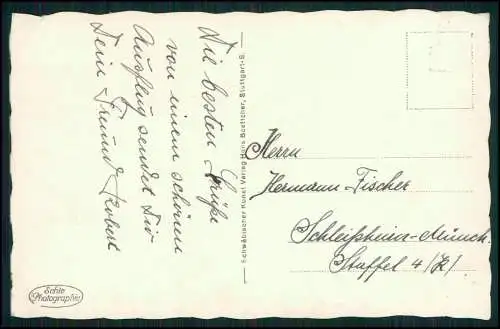 Die besten Grüße
von einem schönen
Ausflug sendet Dir
Dein Freund Robert
Schwäbischer Kunst Verlag Hans Boettcher, Stuttgart-S.
Herrn
Hermann Fischer
Schleißheim-Münch.
Staffel 4/(K)
Echte
Photographie